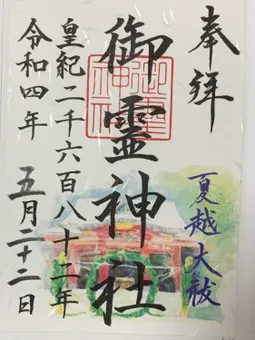 奉拝
夏越大祓
御霊神社
皇紀二千六百八十二年
令和四年 五月二十二日